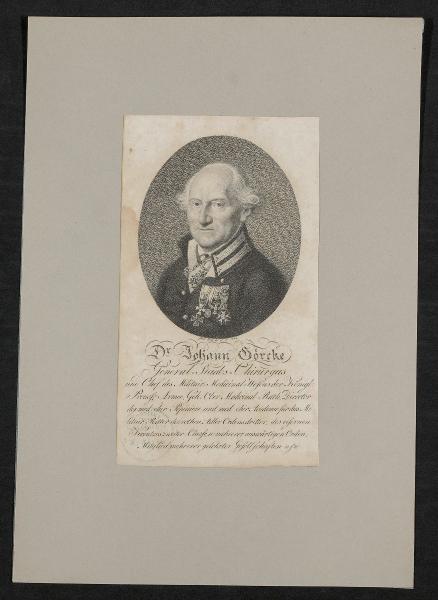 Dr. Johann Görcke
General-Staabs-Chirurgus
und Chef des Militair-Medicinal-Wesens der Königl.
Preuss. Armee, Geh. Ober-Medicinal-Rath, Director
der med. chir. Pepiniere und med. chir. Academie für das Mi-
litair, Ritter des rothen Adler-Ordens dritter, des eisernen
Kreutzes zweiter Classe u. mehrerer auswärtigen Orden,
Mitglied mehrerer gelehrter Gesellschaften